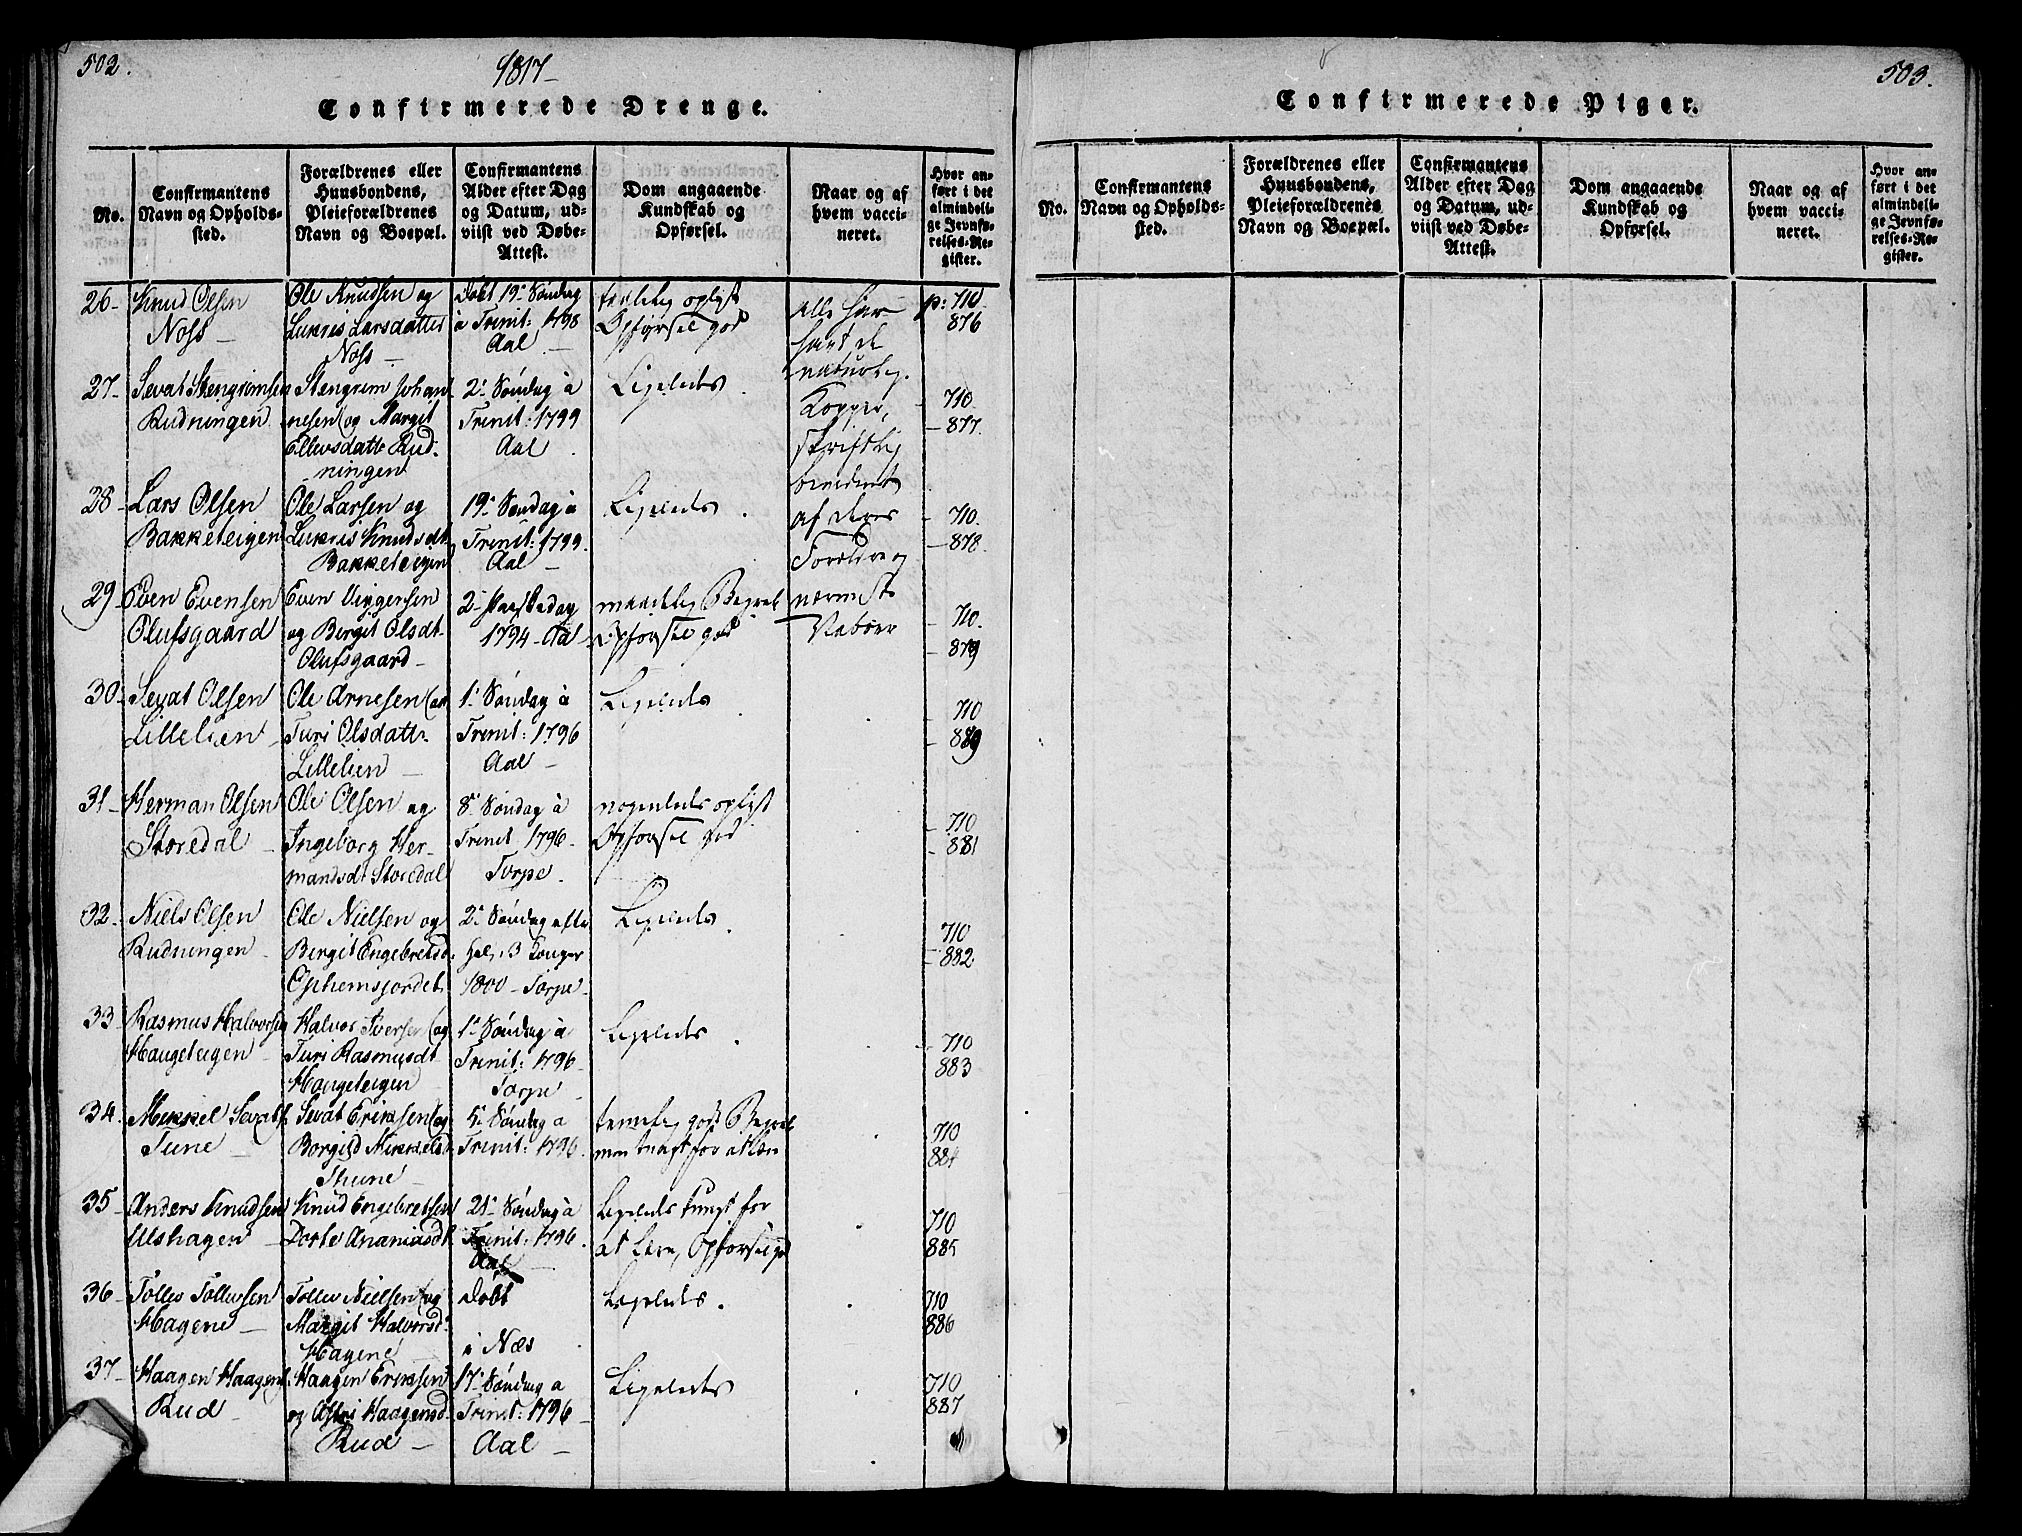 502.
1817
Confirmerede Drenge.
No.
Confirmantens
Navn og Opholds-
sted.
Forældrenes eller
Huusbondens,
Pleieforældrenes
Navn og Boepæl.
Confirmantens
Alder efter Dag
og Datum, ud-
viist ved Døbe-
Attest.
Dom angaaende
Kundskab og
Opførsel.
Naar og af
hvem vacci-
neret.
Hvor an-
ført i det
almindeli-
ge Jevnfø-
relses-Re-
gister.
26- Knud Olsen
Noss -
Ole Knudsen og
Lukris Larsdatter
Noss -
Døbt 19de Søndag
à Trinit: 1798
Aal -
taalelig oplyst
Opførsel god
Alle har
havt de
naturlig.
Kopper,
skriftlig
bevidnet
af deres
Forældre og
nærmeste
Naboer
p: 710.
876
27- Sevat Stengrimsen
Rudningen
Stengrim Johan-
nesen og Margit
Ellevsdatter Rud-
ningen
2. Søndag à
Trinit: 1799
Aal
Ligeledes
710.
877.
28- Lars Olsen
Bakketeigen
Ole Larsen og
Lukris Knudsdt
Bakketeigen
19. Søndag à
Trinit: 1799.
Aal -
Ligeledes
710.
878.
29- Even Evensen
Olufsgaard
Even Viggersen
og Berget Olsdt
Olufsgaard -
2- Paaskedag
1794 - Aal -
maadelig Begreb
Opførsel god
710.
879
30- Sevat Olsen
Lillelien -
Ole Arnesen og
Turi Olsdatter
Lillelien -
1. Søndag à
Trinit: 1796
Aal -
Ligeledes
710
31- Herman Olsen
Storedal -
Ole Olsen og
Ingeborg Her-
mandsdt Storedal
8. Søndag à
Trinit 1796-
Torpe
nogenledes oplyst
Opførsel god
710
881
32- Niels Olsen
Rudningen -
Ole Nielsen og
Bergit Engebretsd.
Ophemsjordet
2. Søndag efter
Hel: 3 Konger
1800 - Torpe -
Ligeledes
710
882.
33 Rasmus Halvorsen
Haugeteigen -
Halvor Iversen og
Turi Rasmusdt
Haugeteigen
1. Søndag à
Trinit: 1796
Torpe
Ligeledes
710
883
34. Mikkel Sevats.
Tune -
Sevat Eriksen og
Borgild Mikkelsd.
Thune -
5. Søndag à
Trinit: 1796.
temelig godt Begreb
men tungt for at lære
710
884
35- Anders Knudsen
Ulshagen -
Knud Engebretsen
Dorte Ananiasdt
21. Søndag à
Trinit: 1796.
Aal
Ligeledes tungt for
at lære, Opførsel god
710
885
36- Tollev Tollevsen
Hagene -
Tollev Nielsen og
Margit Halvorsd.
Hagene
Døbt
i Næs
Ligeledes.
710
886
37- Haagen Haagens.
Rud -
Haagen Eriksen
og Astri Haagensd.
Rud -
17. Søndag à
Trinit: 1796-
Aal -
Ligeledes
710
887
503.
Confirmerede Piger.
No.
Confirmantens
Navn og Opholds-
sted.
Forældrenes eller
Huusbondens,
Pleieforældrenes
Navn og Boepæl.
Confirmantens
Alder efter Dag
og Datum, ud-
viist ved Døbe-
Attest.
Dom angaaende
Kundskab og
Opførsel.
Naar og af
hvem vacci-
neret.
Hvor an-
ført i det
almindeli-
ge Jevnfø-
relses-Re-
gister.